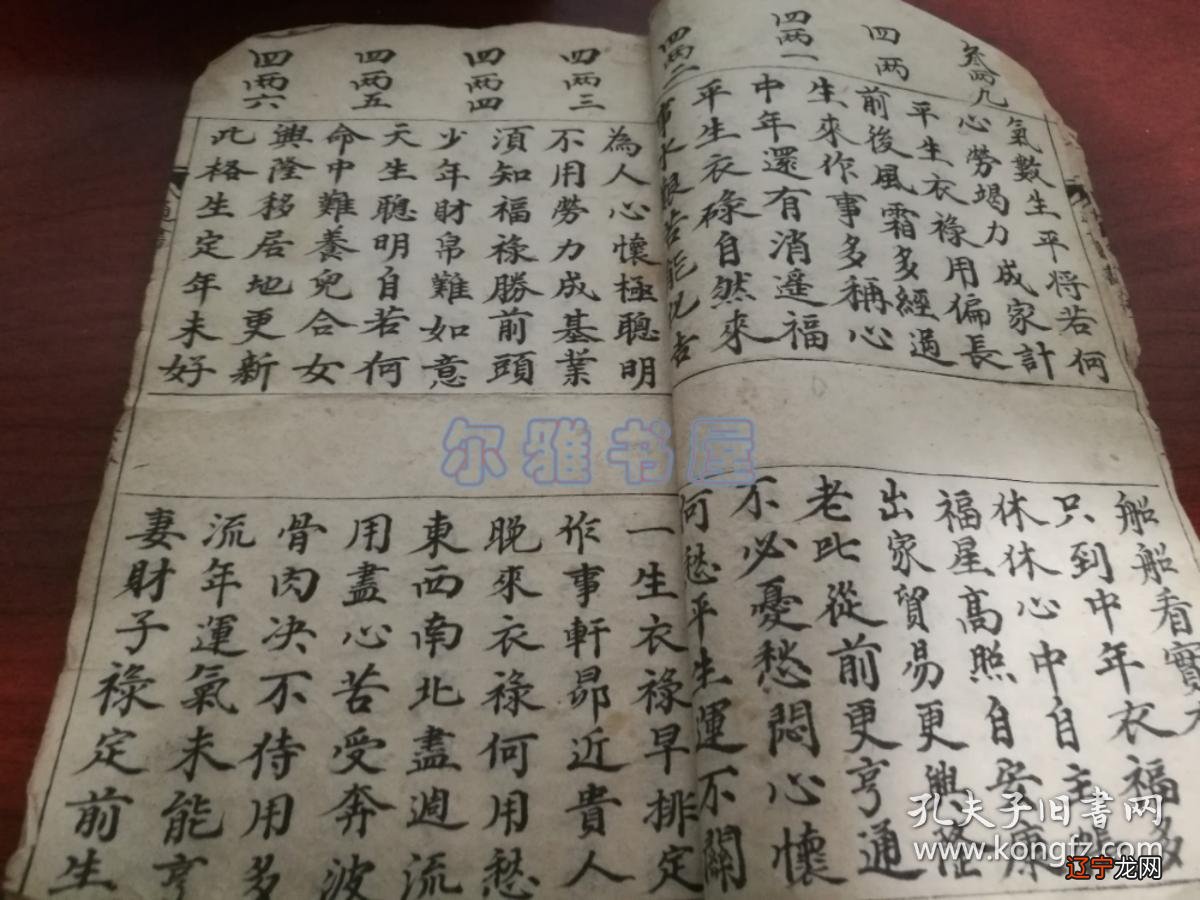 叁兩九
四兩
四兩一
四兩二
氣數生平將若何
心勞竭力成家計
平生衣祿用偏長
前後風霜多經過
生來作事多稱心
中年還有消遙福
平生衣碌自然來
船船看寶
只到中年衣福多
休休心中自主張
福星高照自安康
出家貿易更興隆
老比從前更亨通
不必憂愁悶心懷
何愁平生運不關
四兩三
四兩四
四兩五
四兩六
為人心懷極聰明
不用勞力成基業
須知福祿勝前頭
少年財帛難如意
天生聰明自若何
命中難養兒合女
興隆移居地更新
此格生定年未好
一生衣祿早排定
作事軒昂近貴人
晚來衣祿何用愁
東西南北盡週流
用盡心苦受奔波
骨肉決不待用多
流年運氣未能亨
妻財子祿定前生
尔雅书屋
孔夫子旧书网
www.kongfz.com
辽宁龙网